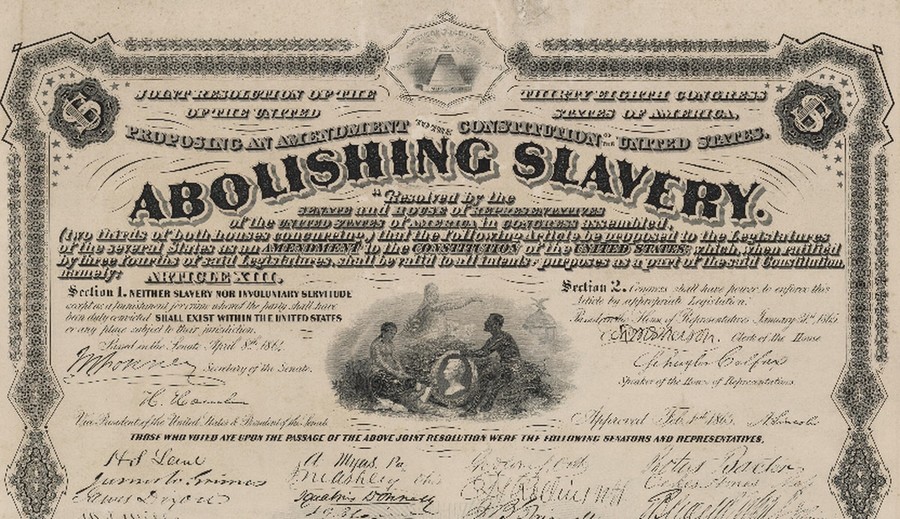 JOINT RESOLUTION OF THE THIRTY EIGHTH CONGRESS
OF THE UNITED STATES OF AMERICA,
PROPOSING AN AMENDMENT TO THE CONSTITUTION OF THE UNITED STATES.
ABOLISHING SLAVERY.
"Resolved by the
SENATE and HOUSE OF REPRESENTATIVES
of the UNITED STATES OF AMERICA in CONGRESS assembled,
(two thirds of both houses concurring,) that the following Article be proposed to the Legislatures
of the several States as an AMENDMENT to the CONSTITUTION of the UNITED STATES, which, when ratified
by three fourths of said Legislatures, shall be valid to all intents & purposes as a part of the said Constitution,
namely: ARTICLE XIII.
Section 1. NEITHER SLAVERY NOR INVOLUNTARY SERVITUDE
except as a punishment for crime whereof the party shall have
been duly convicted SHALL EXIST WITHIN THE UNITED STATES
or any place subject to their jurisdiction.
Passed in the Senate April 8th 1864.
Secretary of the Senate.
H. Hamlin
Vice President of the United States & President of the Senate
Section 2. Congress shall have power to enforce this
Article by appropriate Legislation.
Passed in the House of Representatives January 31st 1865
Clerk of the House
Schuyler Colfax
Speaker of the House of Representatives
Approved Feb. 1st 1865. A. Lincoln
THOSE WHO VOTED AYE UPON THE PASSAGE OF THE ABOVE JOINT RESOLUTION WERE THE FOLLOWING SENATORS AND REPRESENTATIVES,
H S Lane
James W. Grimes
James Dixon
Ignatius Donnelly